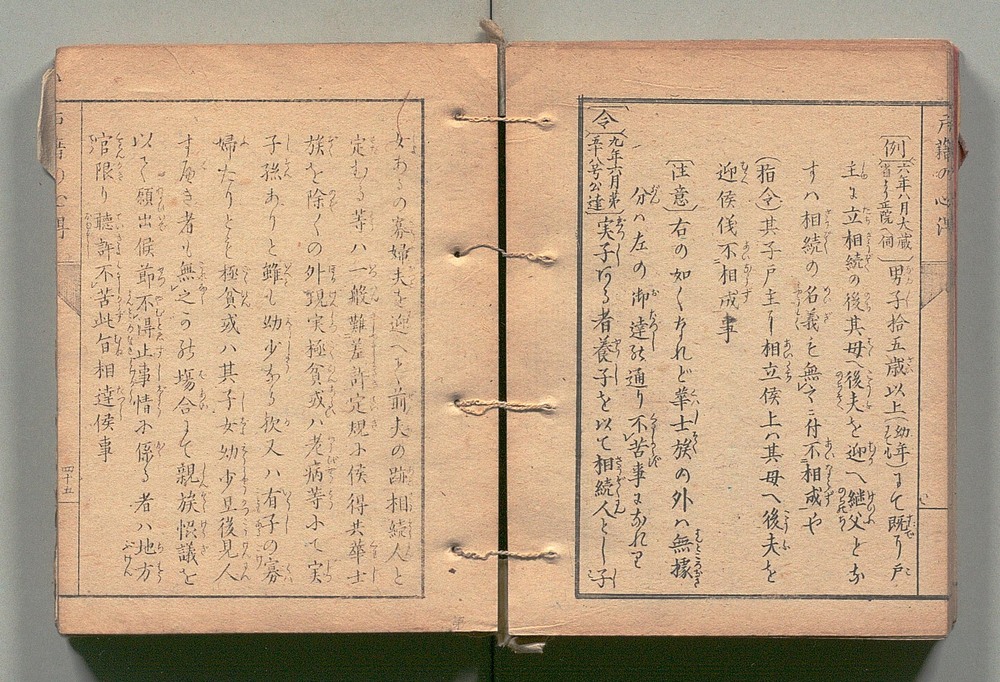 戸籍の心得
例 六年八月大蔵省より正院へ伺 男子拾五歳以上(幼年)にて既り戸
主に立相続の後其母へ後夫を迎へ継父とな
すハ相続の名義も無之ニ付不相成や
(指令)其子戸主に相立候上ハ其母へ後夫を
迎候儀不相成事
(注意)右の如くなれど華士族の外ハ無據
分ハ左の御達の通り不苦事なれど
令 九年六月第五十八号公達 実子ある者養子を以て相続人とし子
女あるの寡婦夫を迎へて前夫の跡相続人と
定むる等ハ一般難差許定規に候得共華士
族を除くの外現実極貧或ハ老病等にて実
子孫ありと雖も幼少なる歟又ハ有子の寡
婦たりとも極貧或ハ其子女幼少且後見人
すべき者も無之の場合にて親族協議を
以て願出候節不得止事情に係る者ハ地方
官限り聴許不苦此旨相達候事
四十五